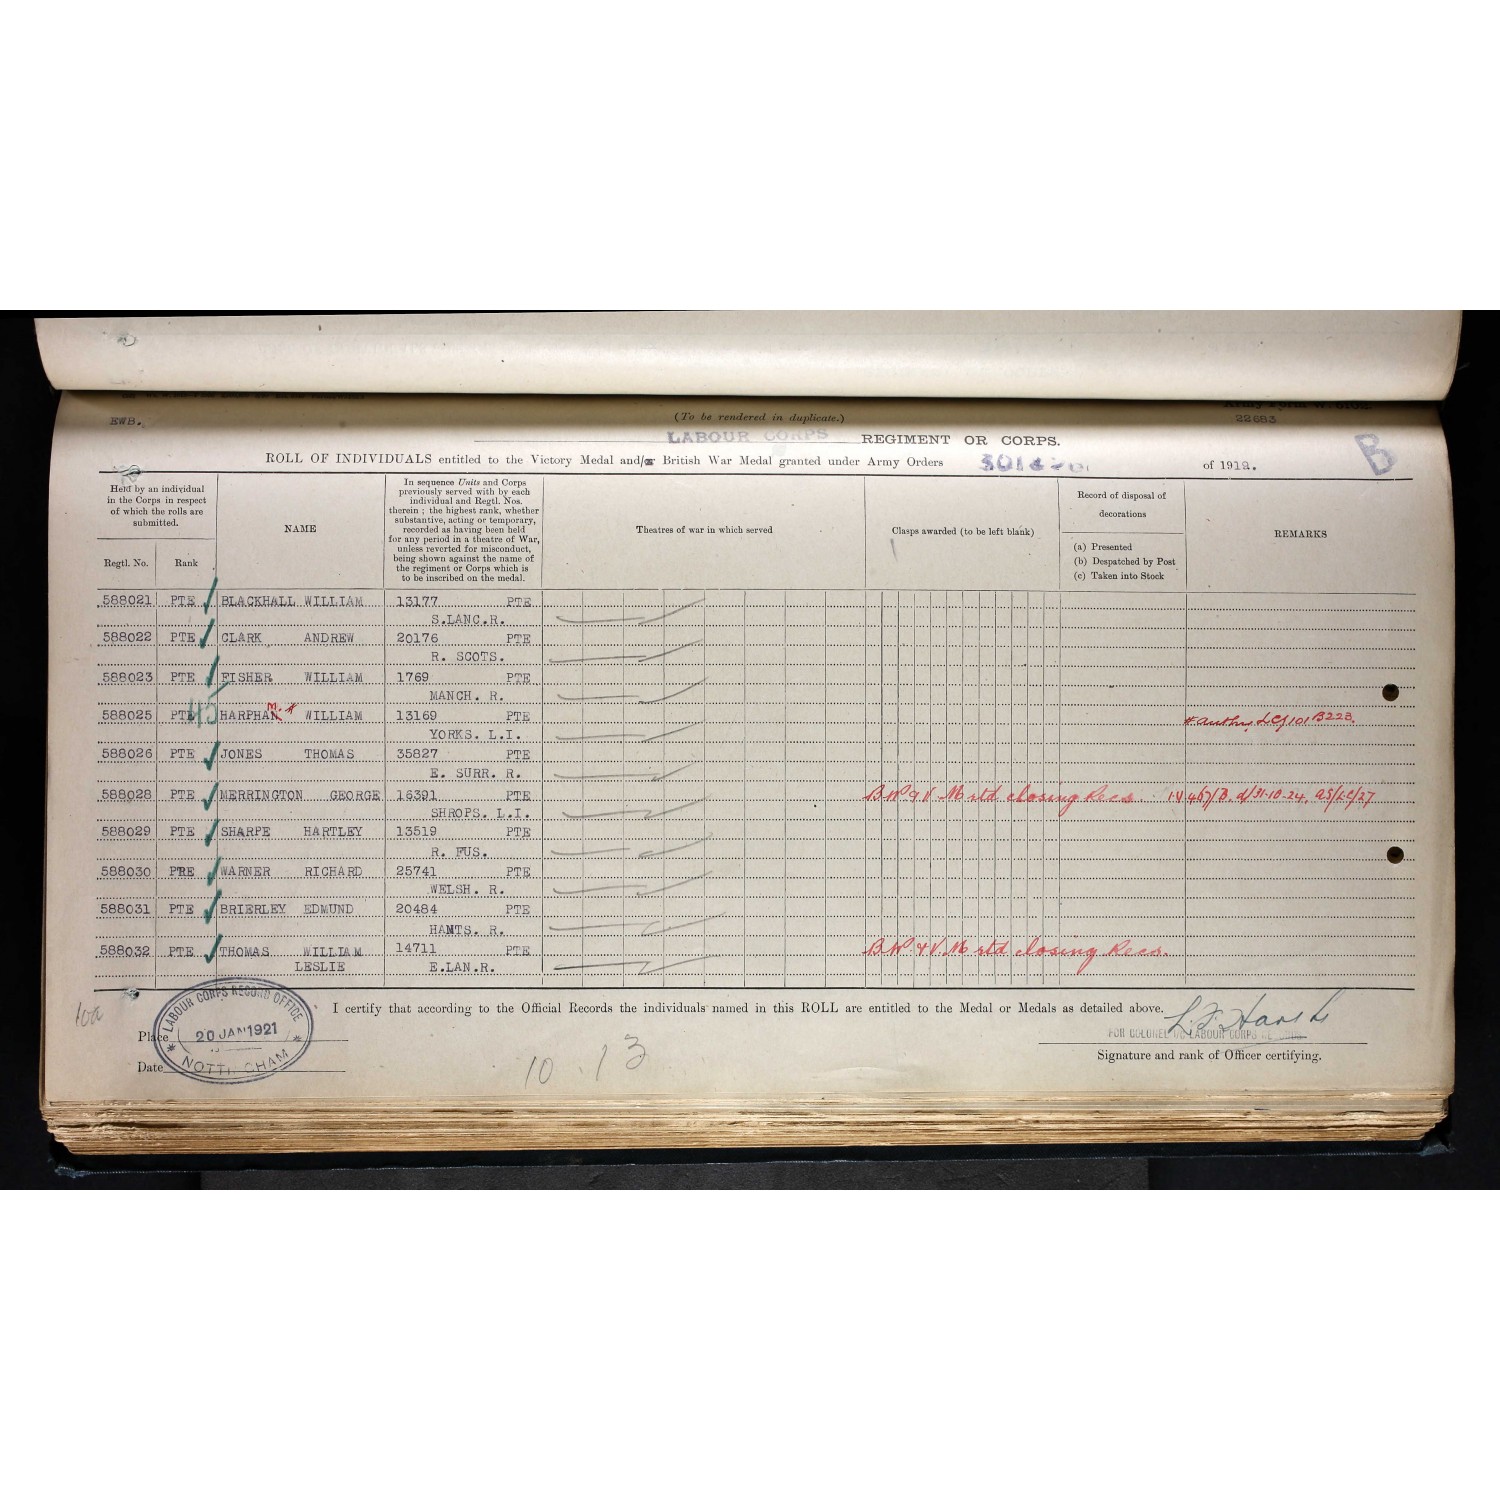 EWB.
(To be rendered in duplicate.)
22683
LABOUR CORPS REGIMENT OR CORPS.
B
ROLL OF INDIVIDUALS entitled to the Victory Medal and/or British War Medal granted under Army Orders of 1919.
Held by an individual in the Corps in respect of which the rolls are submitted.
Regtl. No.
Rank
NAME
In sequence Units and Corps previously served with by each individual and Regtl. Nos. therein ; the highest rank, whether substantive, acting or temporary, recorded as having been held for any period in a theatre of War, unless reverted for misconduct, being shown against the name of the regiment or Corps which is to be inscribed on the medal.
Theatres of war in which served
Clasps awarded (to be left blank)
Record of disposal of decorations
(a) Presented
(b) Despatched by Post
(c) Taken into Stock
REMARKS
588021 PTE BLACKHALL WILLIAM 13177 PTE
S.LANC.R.
588022 PTE CLARK ANDREW 20176 PTE
R. SCOTS.
588023 PTE FISHER WILLIAM 1769 PTE
MANCH. R.
588025 PTE HARPHAN M. WILLIAM 13169 PTE
YORKS. L.I.
588026 PTE JONES THOMAS 35827 PTE
E. SURR. R.
588028 PTE MERRINGTON GEORGE 16391 PTE B.W & V. M rtd closing Recs. d/31-10-24.
SHROPS. L.I.
588029 PTE SHARPE HARTLEY 13519 PTE
R. FUS.
588030 PRE WARNER RICHARD 25741 PTE
WELSH. R.
588031 PTE BRIERLEY EDMUND 20484 PTE
HANTS. R.
588032 PTE THOMAS WILLIAM 14711 PTE B.W & V. M rtd closing Recs.
LESLIE E.LAN.R.
I certify that according to the Official Records the individuals named in this ROLL are entitled to the Medal or Medals as detailed above.
10a
LABOUR CORPS RECORD OFFICE
20 JAN 1921
Place
Date
10 . 13
FOR COLONEL I/C LABOUR CORPS
Signature and rank of Officer certifying.